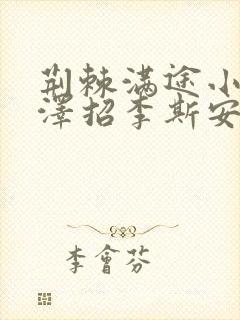 荆棘满途小
澤招李斯安
李會芬